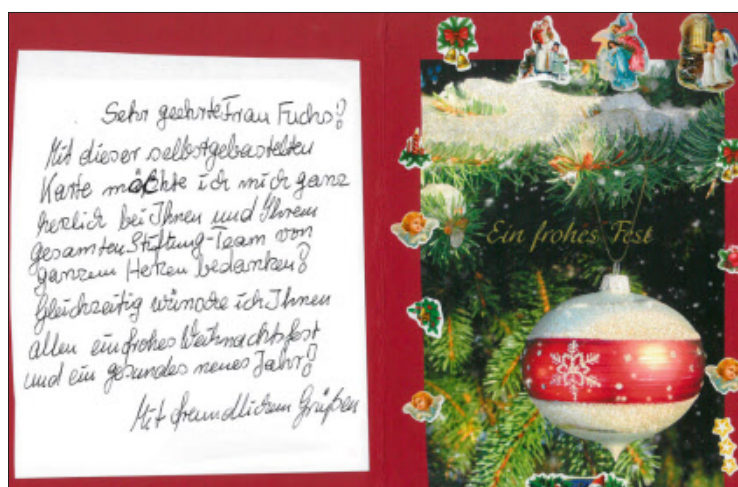 Sehr geehrte Frau Fuchs!
Mit dieser selbstgebastelten
Karte möchte ich mich ganz
herzlich bei Ihnen und Ihrem
gesamten Stiftung-Team von
ganzem Herzen bedanken!
Gleichzeitig wünsche ich Ihnen
allen ein frohes Weihnachtsfest
und ein gesundes neues Jahr!
Mit freundlichen Grüßen
Ein frohes Fest